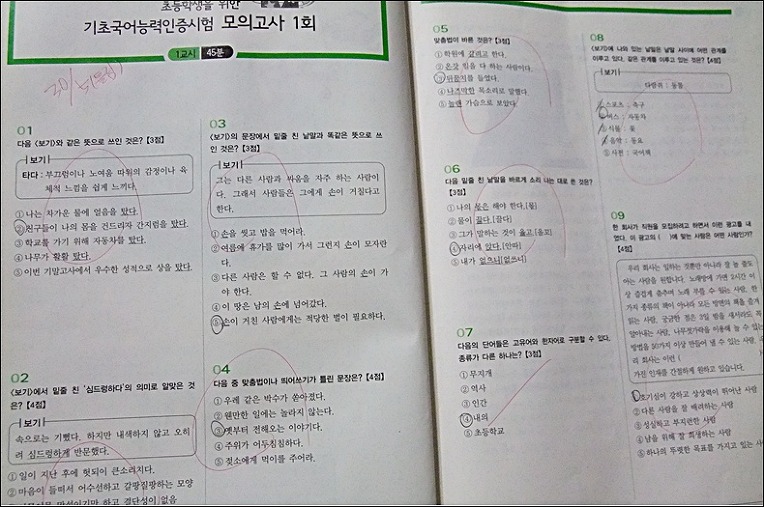 초등학생을 위한
기초국어능력인증시험 모의고사 1회
1교시 45분
01
다음 <보기>와 같은 뜻으로 쓰인 것은? 【3점】
보기
타다 : 부끄럼이나 노여움 따위의 감정이나 육
체적 느낌을 쉽게 느끼다.
① 나는 차가운 물에 얼음을 탔다.
② 친구들이 나의 몸을 건드리자 간지럼을 탔다.
③ 학교를 가기 위해 자동차를 탔다.
④ 나무가 활활 탔다.
⑤ 이번 기말고사에서 우수한 성적으로 상을 탔다.
02
<보기>에서 밑줄 친 '심드렁하다'의 의미로 알맞은 것
은? 【4점】
보기
속으로는 기뻤다. 하지만 내색하지 않고 오히
려 심드렁하게 반문했다.
① 일이 지난 후에 헛되이 큰소리치다.
② 마음이 들떠서 어수선하고 갈팡질팡하는 모양
03
<보기>의 문장에서 밑줄 친 낱말과 똑같은 뜻으로 쓰
인 것은? 【3점】
보기
그는 다른 사람과 싸움을 자주 하는 사람이
다. 그래서 사람들은 그에게 손이 거칠다고
한다.
① 손을 씻고 밥을 먹어라.
② 여름에 휴가를 많이 가서 그런지 손이 모자란
다.
③ 다른 사람은 할 수 없다. 그 사람의 손이 가
야 한다.
④ 이 땅은 남의 손에 넘어갔다.
⑤ 손이 거친 사람에게는 적당한 벌이 필요하다.
04
다음 중 맞춤법이나 띄어쓰기가 틀린 문장은? 【4점】
① 우레 같은 박수가 쏟아졌다.
② 웬만한 일에는 놀라지 않는다.
③ 옛부터 전해오는 이야기다.
④ 주위가 어두침침하다.
⑤ 젖소에게 먹이를 주어라.
05
맞춤법이 바른 것은? 【3점】
① 학원에 갈려고 한다.
② 온갖 힘을 다 하는 사람이다.
④ 나즈막한 목소리로 말했다.
06
다음 밑줄 친 낱말을 바르게 소리 나는 대로 쓴 것은?
【3점】
② 몸이 젊다.[점다]
③ 그가 말하는 것이 옳고[올꼬]
④ 자리에 앉다.[안따]
⑤ 내가 없으니[업쓰니]
07
다음의 단어들은 고유어와 한자어로 구분할 수 있다.
종류가 다른 하나는? 【3점】
① 무지개
② 역사
③ 인간
④ 내의
⑤ 초등학교
08
<보기>에 나와 있는 낱말은 낱말 사이에 어떤 관계를
이루고 있다. 같은 관계를 이루고 있는 것은? 【4점】
보기
다람쥐 : 동물
① 스포츠 : 축구
② 버스 : 자동차
③ 식물 : 꽃
④ 음악 : 동요
⑤ 사전 : 국어책
09
한 회사가 직원을 모집하려고 하면서 이런 광고를 내
었다. 이 광고의 ( )에 맞는 사람은 어떤 사람인가?
【4점】
우리 회사는 일하는 것뿐만 아니라 잘 놀 줄도
아는 사람을 원합니다. 노래방에 가면 2시간 이
상 즐겁게 춤추며 노래 부를 수 있는 사람, 한
가지 종류의 책이 아니라 모든 방면의 책을 즐겨
읽는 사람, 궁금한 점은 3일 밤을 새서라도 꼭
알아내는 사람, 나무젓가락을 이용해 놀 수 있는
방법을 50가지 이상 만들어 낼 수 있는 사람, 우
리 회사는 이런 (
가진 인재를 간절하게 원하고 있습니다.
① 호기심이 강하고 상상력이 뛰어난 사람
② 다른 사람을 잘 배려하는 사람
③ 성실하고 부지런한 사람
④ 남을 위해 잘 희생하는 사람
⑤ 하나의 뚜렷한 목표를 가지고 있는 사